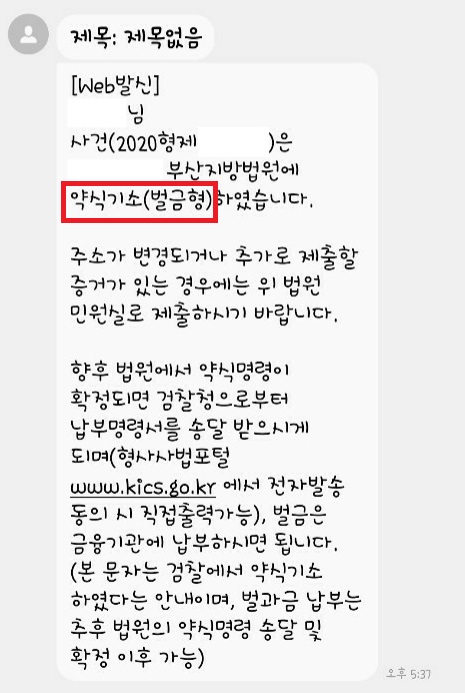 제목: 제목없음
[Web발신]
님
사건(2020형제 )은
부산지방법원에
약식기소(벌금형)하였습니다.
주소가 변경되거나 추가로 제출할
증거가 있는 경우에는 위 법원
민원실로 제출하시기 바랍니다.
향후 법원에서 약식명령이
확정되면 검찰청으로부터
납부명령서를 송달 받으시게
되며(형사사법포털
www.kics.go.kr 에서 전자발송
동의 시 직접출력가능), 벌금은
금융기관에 납부하시면 됩니다.
(본 문자는 검찰에서 약식기소
하였다는 안내이며, 벌과금 납부는
추후 법원의 약식명령 송달 및
확정 이후 가능)
오후 5:37